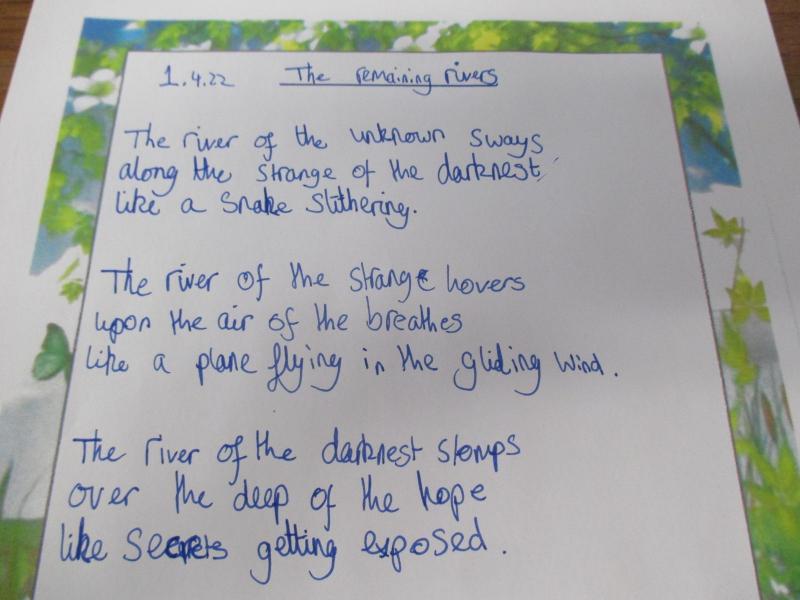 1.4.22 The remaining rivers
The river of the unknown sways
along the strange of the darknest
like a snake slithering.
The river of the strange hovers
upon the air of the breathes
like a plane flying in the gliding wind.
The river of the darknest stomps
over the deep of the hope
like secrets getting exposed.